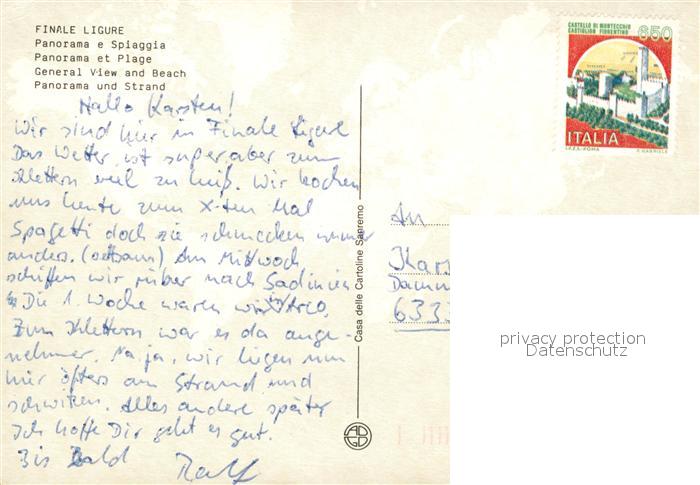 FINALE LIGURE
Panorama e Spiaggia
Panorama et Plage
General View and Beach
Panorama und Strand
Hallo Karsten!
Wir sind hier in Finale Ligure
Das Wetter ist super aber zum
Klettern viel zu heiß. Wir kochen
uns heute zum X-ten Mal
Spagetti doch sie schmecken immer
anders. (seltsam) Am Mittwoch
schiffen wir rüber nach Sadinien
Die 1. Woche waren wir in Arco,
Zum Klettern war es da ange-
nehmer. Na ja, wir liegen nun
hier öfters am Strand und
schwitzen. Alles andere später
Ich hoffe Dir geht es gut.
Bis Bald Ralf
Casa delle Cartoline Sanremo
CASTELLO DI MONTECCHIO
CASTIGLION FIORENTINO
650
ITALIA
I.P.Z.S. ROMA
An
Kars
Damm
6333
privacy protection
Datenschutz